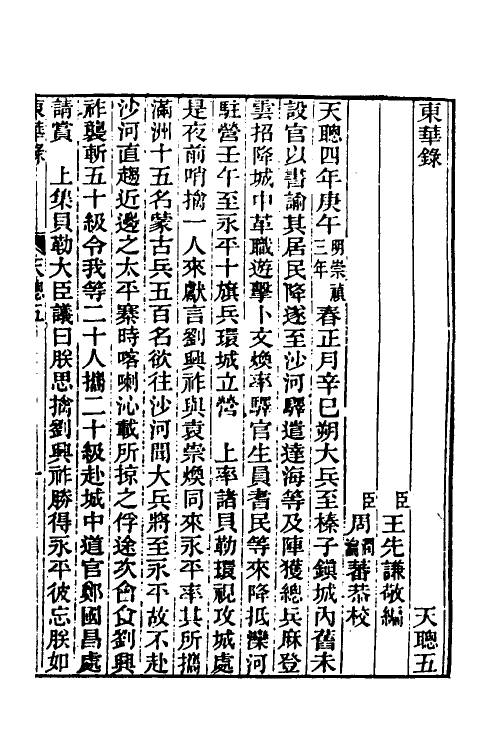 東華錄 天聰五
臣王先謙敬編
臣周潤瀹蕃恭校
天聰四年庚午明崇禎三年春正月辛巳朔大兵至榛子鎮城內舊未
設官以書諭其居民降遂至沙河驛遣達海等及陣獲總兵麻登
雲招降城中革職遊擊卜文煥率驛官生員耆民等來降抵灤河
駐營壬午至永平十旗兵環城立營 上率諸貝勒環視攻城處
是夜前哨擒一人來獻言劉興祚與袁崇煥同來永平率其所攜
滿洲十五名蒙古兵五百名欲往沙河聞大兵將至永平故不赴
沙河直趨近邊之太平寨時喀喇沁載所掠之俘途次會食劉興
祚襲斬五十級令我等二十人攜二十級赴城中道官鄭國昌處
請賞 上集貝勒大臣議曰朕思擒劉興祚勝得永平彼忘朕如
東華錄 天聰五 一